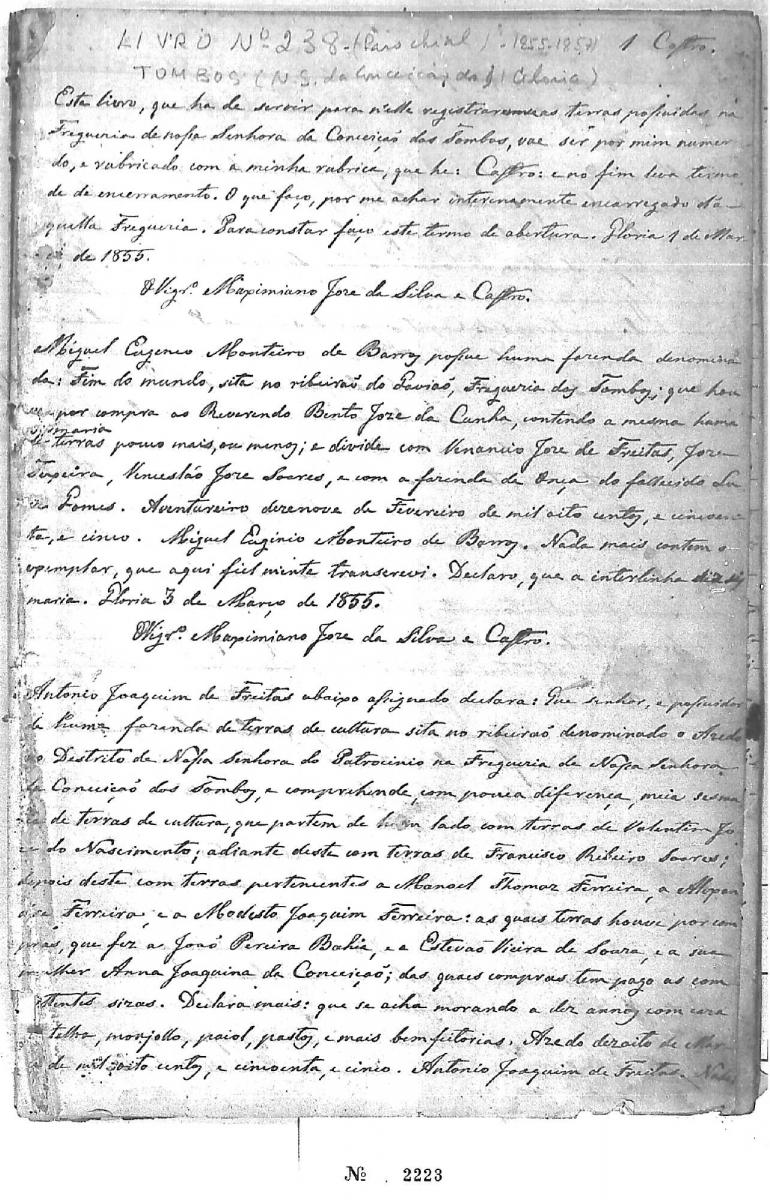 LIVRO Nº 238-(Parochial) 1855-1857 1 Castro.
TOMBOS (N.S. da Conceiçaõ da Gloria)
Este livro, que ha de servir para n'elle registrarem as terras possuidas na
Fregueria de nossa Senhora da Conceiçaõ dos Tombos, vae ser por mim numera
do, e rubricado com a minha rubrica, que he: Castro: e no fim leva termo
de de encerramento. O que faço, por me achar interinamente encarregado d'a-
quella Fregueria. Para constar faço este termo de abertura. Gloria 1 de Mar
ço de 1855.
O Vigrº. Maximiano Joze da Silva e Castro.
Miguel Eugenio Monteiro de Barros possue huma fazenda denomina
da: Fim do mundo, sita no ribeiraõ do Gaviaõ, Fregueria dos Tombos; que hou
ve por compra ao Reverendo Bento Joze da Cunha, contendo a mesma huma
sismaria
de terras pouco mais, ou menos; e divide com Venancio Joze de Freitas, Joze
Teixeira, Venceslão Joze Soares, e com a fazenda da Onça do fallecido Lu
iz Gomes. Aventureiro dezenove de Fevereiro de mil oito centos, e cincoen
ta, e cinco. Miguel Euginio Monteiro de Barros. Nada mais contem o
exemplar, que aqui fielmente transcrevi. Declaro, que a interlinha diz sis
maria. Gloria 3 de Março de 1855.
O Vigrº. Maximiano Joze da Silva e Castro.
Antonio Joaquim de Freitas abaixo assignado declara: Que senhor, e possuidor
de huma fazenda de terras de cultura sita no ribeiraõ denominado o Azedo
no Distrito de Nossa Senhora do Patrocinio na Fregueria de Nossa Senhora
da Conceiçaõ dos Tombos, e comprehende, com pouca diferença, meia sesma
ria de terras de cultura, que partem de hum lado com terras de Valentim Jo
ze do Nascimento; adiante deste com terras de Francisco Ribeiro Soares;
depois deste com terras pertencentes a Manoel Thomaz Ferreira, a Alexan
dre Ferreira, e a Modesto Joaquim Ferreira: as quais terras houve por com
pras, que fez a Joaõ Pereira Bahia, e a Estevaõ Vieira de Souza, e a sua
mulher Anna Joaquina da Conceiçaõ; das quais compras tem pago as com
petentes sizas. Declara mais: que se acha morando a dez annos com caza
de telha, monjollo, paiol, pastos, e mais bemfeitorias. Azedo dezoito de Mar
ço de mil oito centos, e cincoenta, e cinco. Antonio Joaquim de Freitas. Nada
Nº 2223